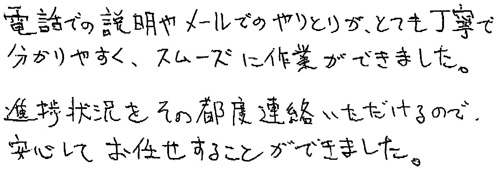 電話での説明やメールでのやりとりが、とても丁寧で
分かりやすく、スムーズに作業ができました。
進捗状況をその都度連絡いただけるので、
安心してお任せすることができました。